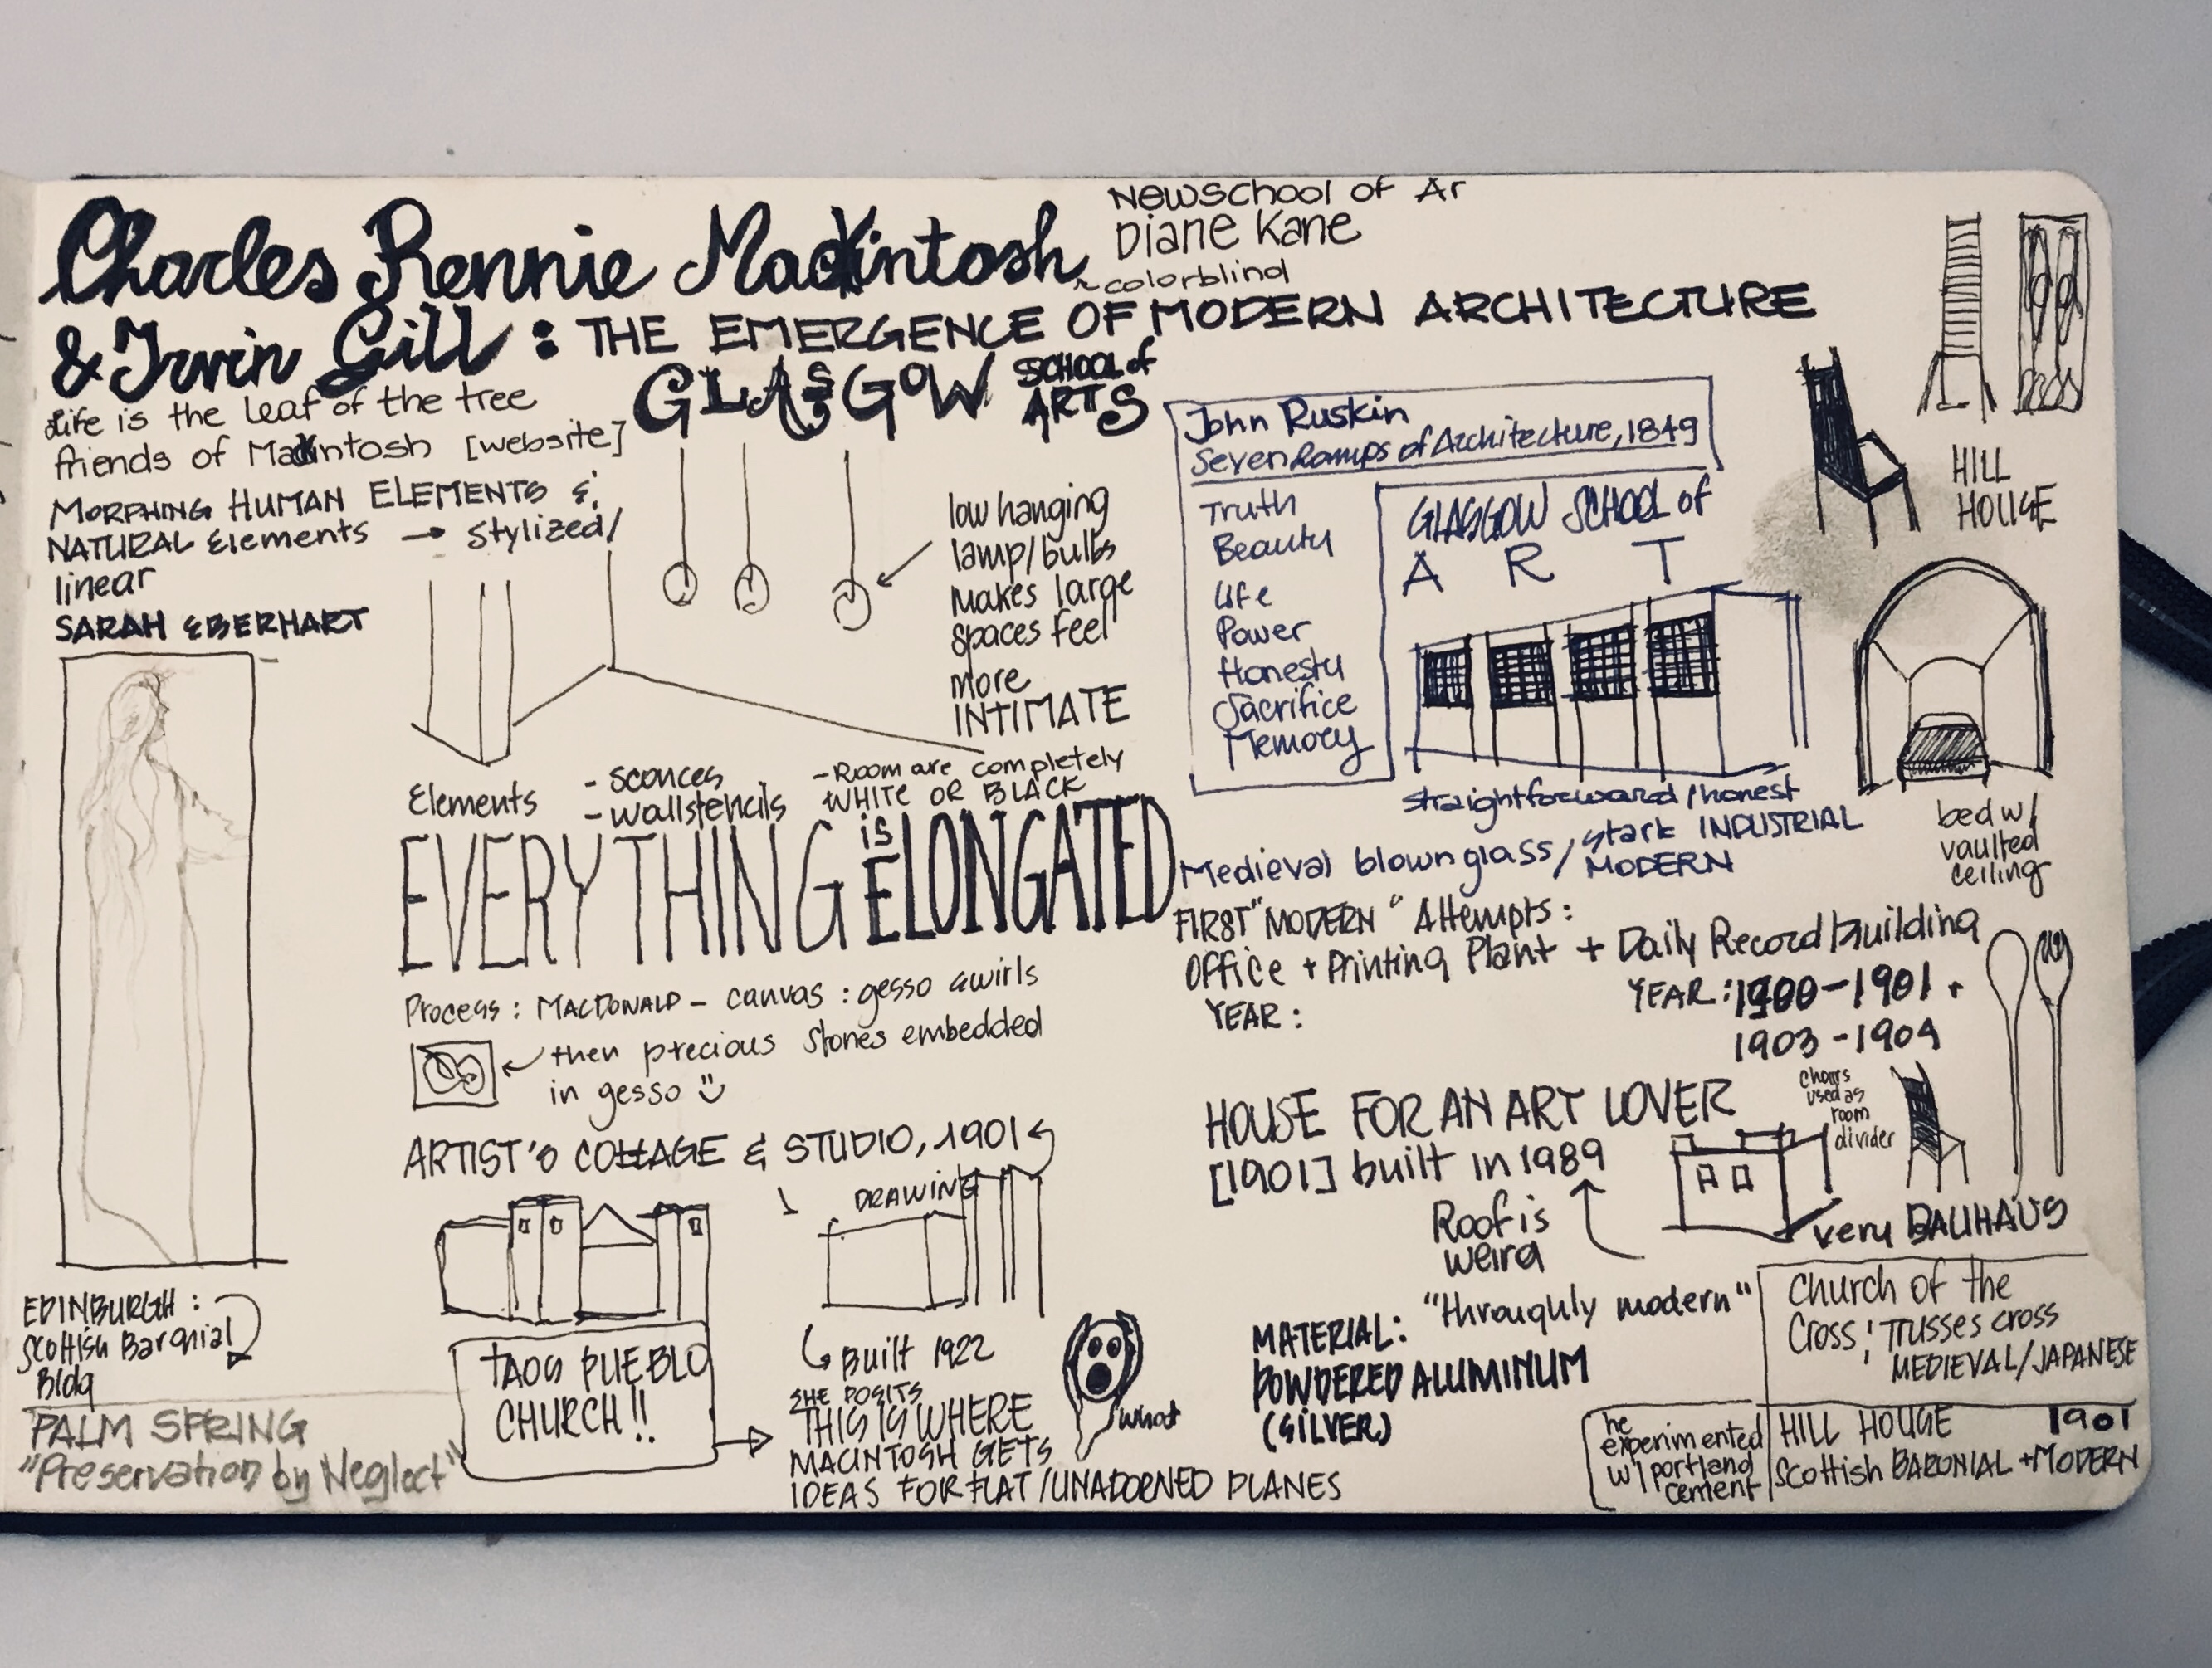 Charles Rennie Mackintosh
Newschool of Ar
Diane Kane
colorblind
& Irvin Gill : THE EMERGENCE OF MODERN ARCHITECTURE
GLASGOW SCHOOL of ARTS
Life is the leaf of the tree
friends of Mackintosh [website]
MORPHING HUMAN ELEMENTS &
NATURAL Elements → stylized/
linear
SARAH EBERHART
low hanging
lamp/bulbs
makes large
spaces feel
more
INTIMATE
Elements
- sconces
- wallstencils
- Room are completely
WHITE OR BLACK
EVERYTHING is ELONGATED
Process : MACDONALD - canvas : gesso swirls
then precious stones embedded
in gesso
ARTIST'S COTTAGE & STUDIO, 1901
DRAWING
TAOS PUEBLO
CHURCH!!
Built 1922
SHE POSITS
THIS IS WHERE
MACINTOSH GETS
IDEAS FOR FLAT/UNADORNED PLANES
what
EDINBURGH :
Scottish Baronial
Bldg
PALM SPRING
"Preservation by Neglect"
John Ruskin
Seven Lamps of Architecture, 1849
Truth
Beauty
Life
Power
Honesty
Sacrifice
Memory
GLASGOW SCHOOL of
A R T
straightforward/honest
Medieval blown glass/stark INDUSTRIAL
MODERN
FIRST "MODERN" Attempts :
Office + Printing Plant + Daily Record building
YEAR :
YEAR : 1900-1901 +
1903-1904
HILL
HOUSE
bed w/
vaulted
ceiling
HOUSE FOR AN ART LOVER
[1901] built in 1989
Roof is
weird
chairs
used as
room
divider
very BAUHAUS
"throughly modern"
MATERIAL:
POWDERED ALUMINUM
(SILVER)
Church of the
Cross: Trusses cross
MEDIEVAL/JAPANESE
he
experimented
w/portland
cement
HILL HOUSE 1901
Scottish BARONIAL + MODERN